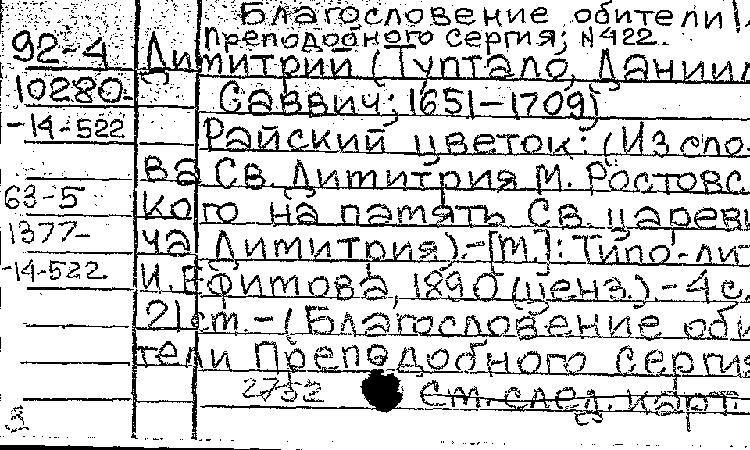 Благословение обители
Преподобного Сергия; N 422.
92-4 Димитрий (Туптало, Даниил
10280- Саввич; 1651-1709)
-14-522 Райский цветок: (Из сло-
ва Св. Димитрия М. Ростовс
63-5 кого на память Св. цареви
1377- ча Димитрия).-[М.]: Типо-ли
-14-522 И. Ефимова, 1890 (ценз.) - 4 с.
21 ст. - (Благословение оби
тели Преподобного Сергия
2752 См. след. карт.
3